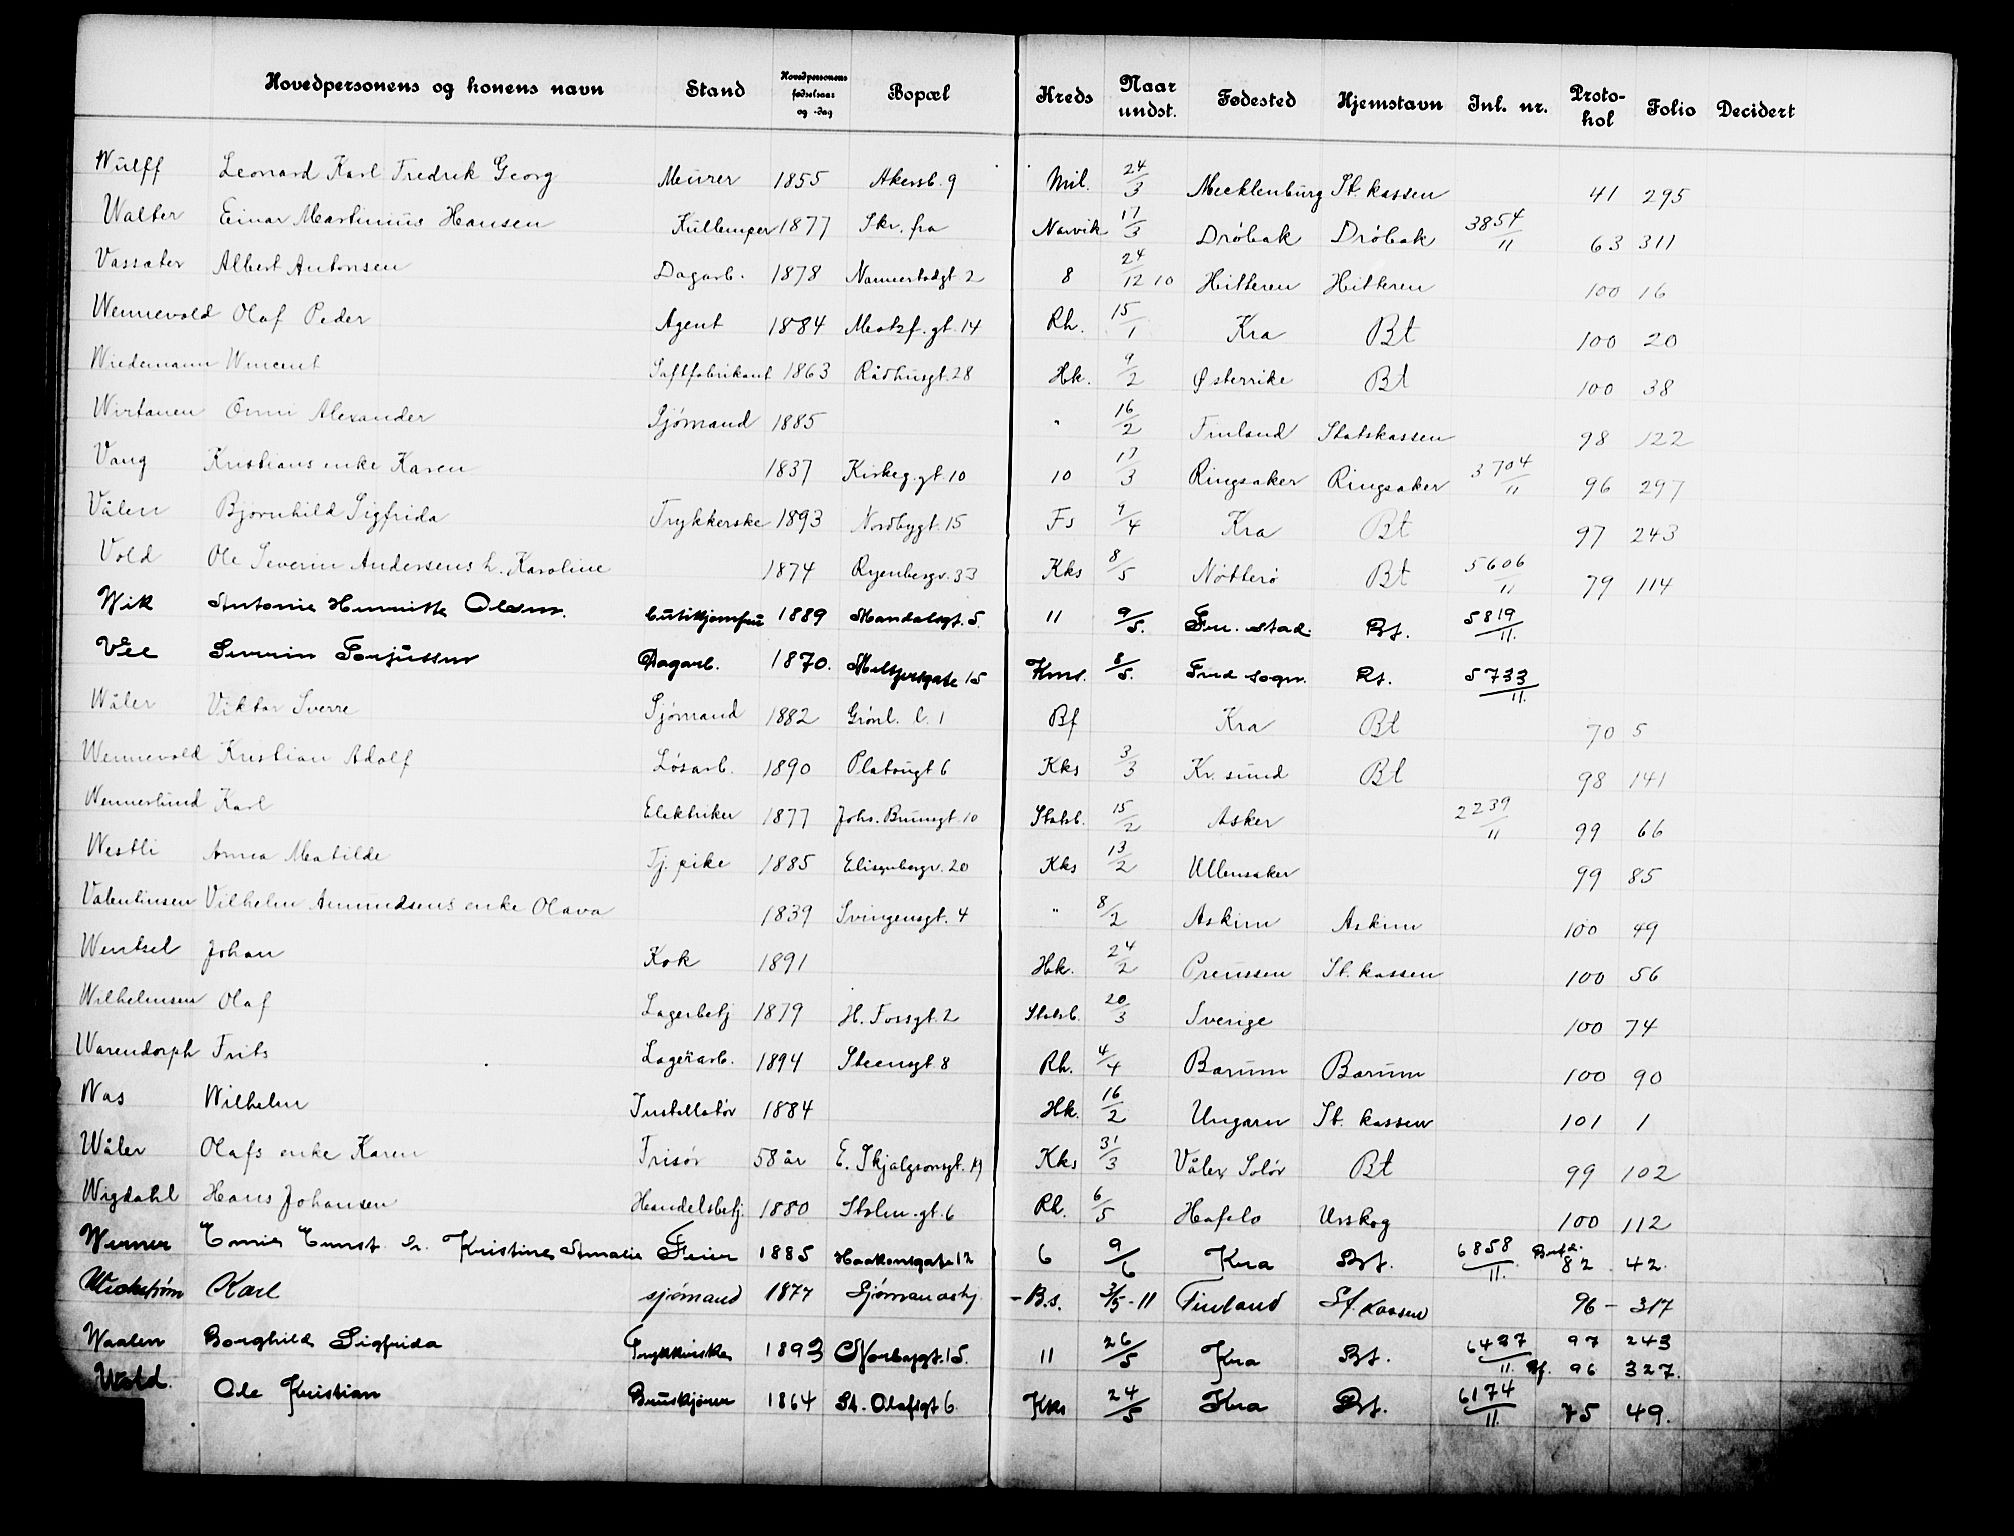 Hovedpersonens og konens navn Stand Hovedpersonens fødselsaar og -dag Bopæl Kreds Naar undst. Fødested Hjemstavn Inl. nr. Protokol Folio Decidert
Wulff Leonard Karl Fredrik Georg Murer 1855 Akersb. 9 Mil. 24/3 Mecklenburg St. kassen 41 295
Walter Einar Martinius Hansen Kullemper 1877 Skr. fra Narvik 17/3 Drøbak Drøbak 3854/11 63 311
Vassater Albert Antonsen Dagarb. 1878 Nannestadgt 2 8 24/12 10 Hitteren Hitteren 100 16
Wennevold Olaf Peder Agent 1884 Motzf. gt. 14 Rh. 15/1 Kra Bt 100 20
Wiedemann Vincent Saftfabrikant 1863 Rådhusgt. 28 Hk. 9/2 Østerrike Bt 100 38
Wirtanen Onni Alexander Sjømand 1885 " 16/2 Finland Statskassen 98 122
Vang Kristians enke Karen 1837 Kirkeg. gt. 10 10 17/3 Ringsaker Ringsaker 3704/11 96 297
Vålen Bjørnhild Sigfrida Trykkerske 1893 Nordbygt. 15 Fs 9/4 Kra Bt 97 243
Vold Ole Severin Andersens h. Karoline 1874 Ryenbergv. 33 Kks 8/5 Nøtterø Bt 5606/11 79 114
Wik Antonie Henriette Olsen. butikjomfru 1889 Mandalsgt. 5. 11 9/5. Fr. stad. Bt. 5819/11.
Vee Severin Torjussen Dagarb. 1870. 15 Kms. 8/5. Bt. 5733/11.
Wåler Viktor Sverre Sjømand 1882 Grønl. l. 1 Bf Kra Bt 70 5
Wennevold Kristian Adolf Løsarb. 1890 Platougt 6 Kks 3/3 Kr. sund Bt 98 141
Wennerlund Karl Elektriker 1877 Johs. Brunsgt. 10 Statsb. 15/2 Asker 2239/11 99 66
Westli Anna Matilde Tj. pike 1885 Elisenbergv. 20 Kks 13/2 Ullensaker 99 85
Valentinsen Vilhelm Amundsens enke Olava 1839 Svingensgt. 4 " 8/2 Askim Askim 100 49
Wentzel Johan Kok 1891 Hk. 24/2 Preussen St. kassen 100 56
Wilhelmsen Olaf Lagerbetj 1879 H. Fossgt. 2 Statsb. 20/3 Sverige 100 74
Warendorph Frits Lagerarb. 1894 Steensgt. 8 Rh. 4/4 Bærum Bærum 100 90
Was Wilhelm Installatør 1884 Hk. 16/2 Ungarn St. kassen 101 1
Wåler Olafs enke Karen Frisør 58 år E. Skjalgsonsgt. Kks 31/3 Våler, Solør Bt 99 102
Wigdahl Hans Johansen Handelsbetj. 1880 Stolm. gt. 6 Rh. 6/5 Hafslo Urskog 100 112
Werner Ernst h. Kristine Amalie Feier 1885 Haakonsgate 12 6 9/6 Kra Bt. 6858/11. 82 42.
Wickstrøm Karl sjømand 1877 Sjømandshj. - B.s. 3/5 - 11 Finland St. kassen 96 - 317
Waalen Borghild Sigfrida Trykkerske 1893 Norbygt. 15. 11 26/5 Kra Bt. 6437/11. 97 243
Bf. 96 327.
Wold. Ole Kristian Bruskjører 1864 St. Olafsgt 6. Kks 24/5 Kra Bt. 6174/11. 75 49.